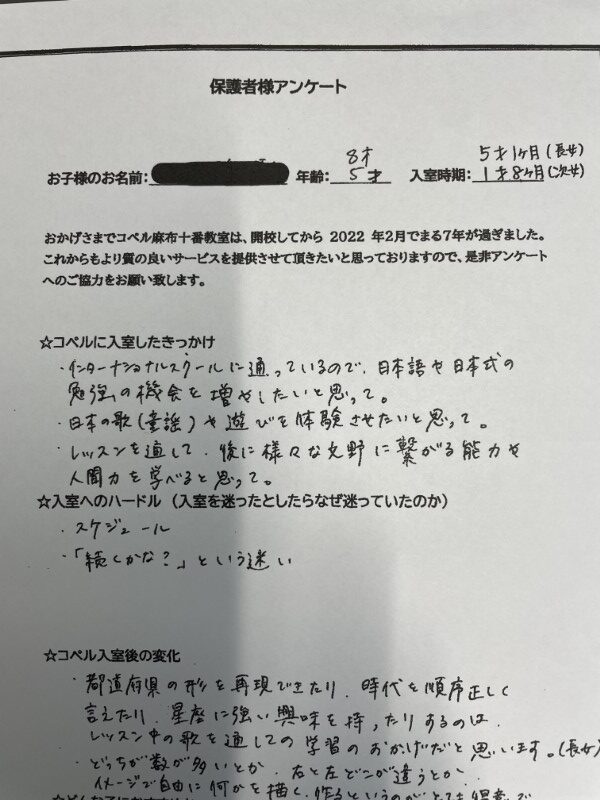 保護者様アンケート
8才 5才1ヶ月(長女)
お子様のお名前: 年齢: 5才 入室時期: 1才8ヶ月(次女)
おかげさまでコペル麻布十番教室は、開校してから 2022 年2月でまる7年が過ぎました。
これからもより質の良いサービスを提供させて頂きたいと思っておりますので、是非アンケート
へのご協力をお願い致します。
☆コペルに入室したきっかけ
・インターナショナルスクールに通っているので、日本語や日本式の
勉強の機会を増やしたいと思って。
・日本の歌(童謡)や遊びを体験させたいと思って。
・レッスンを通して、後に様々な分野に繋がる能力や
人間力を学べると思って。
☆入室へのハードル(入室を迷ったとしたらなぜ迷っていたのか)
・スケジュール
・「続くかな?」という迷い
☆コペル入室後の変化
・都道府県の形を再現できたり、時代を順序正しく
言えたり、星座に強い興味を持ったりするのは、
レッスン中の歌を通しての学習のおかげだと思います。(長女)
・どっちが数が多いとか、右と左どこが違うとか、
イメージで自由に何かを描く、作るというのがとても得意で